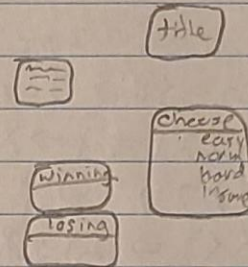 title
cheese
easy
norm
hard
winning
losing